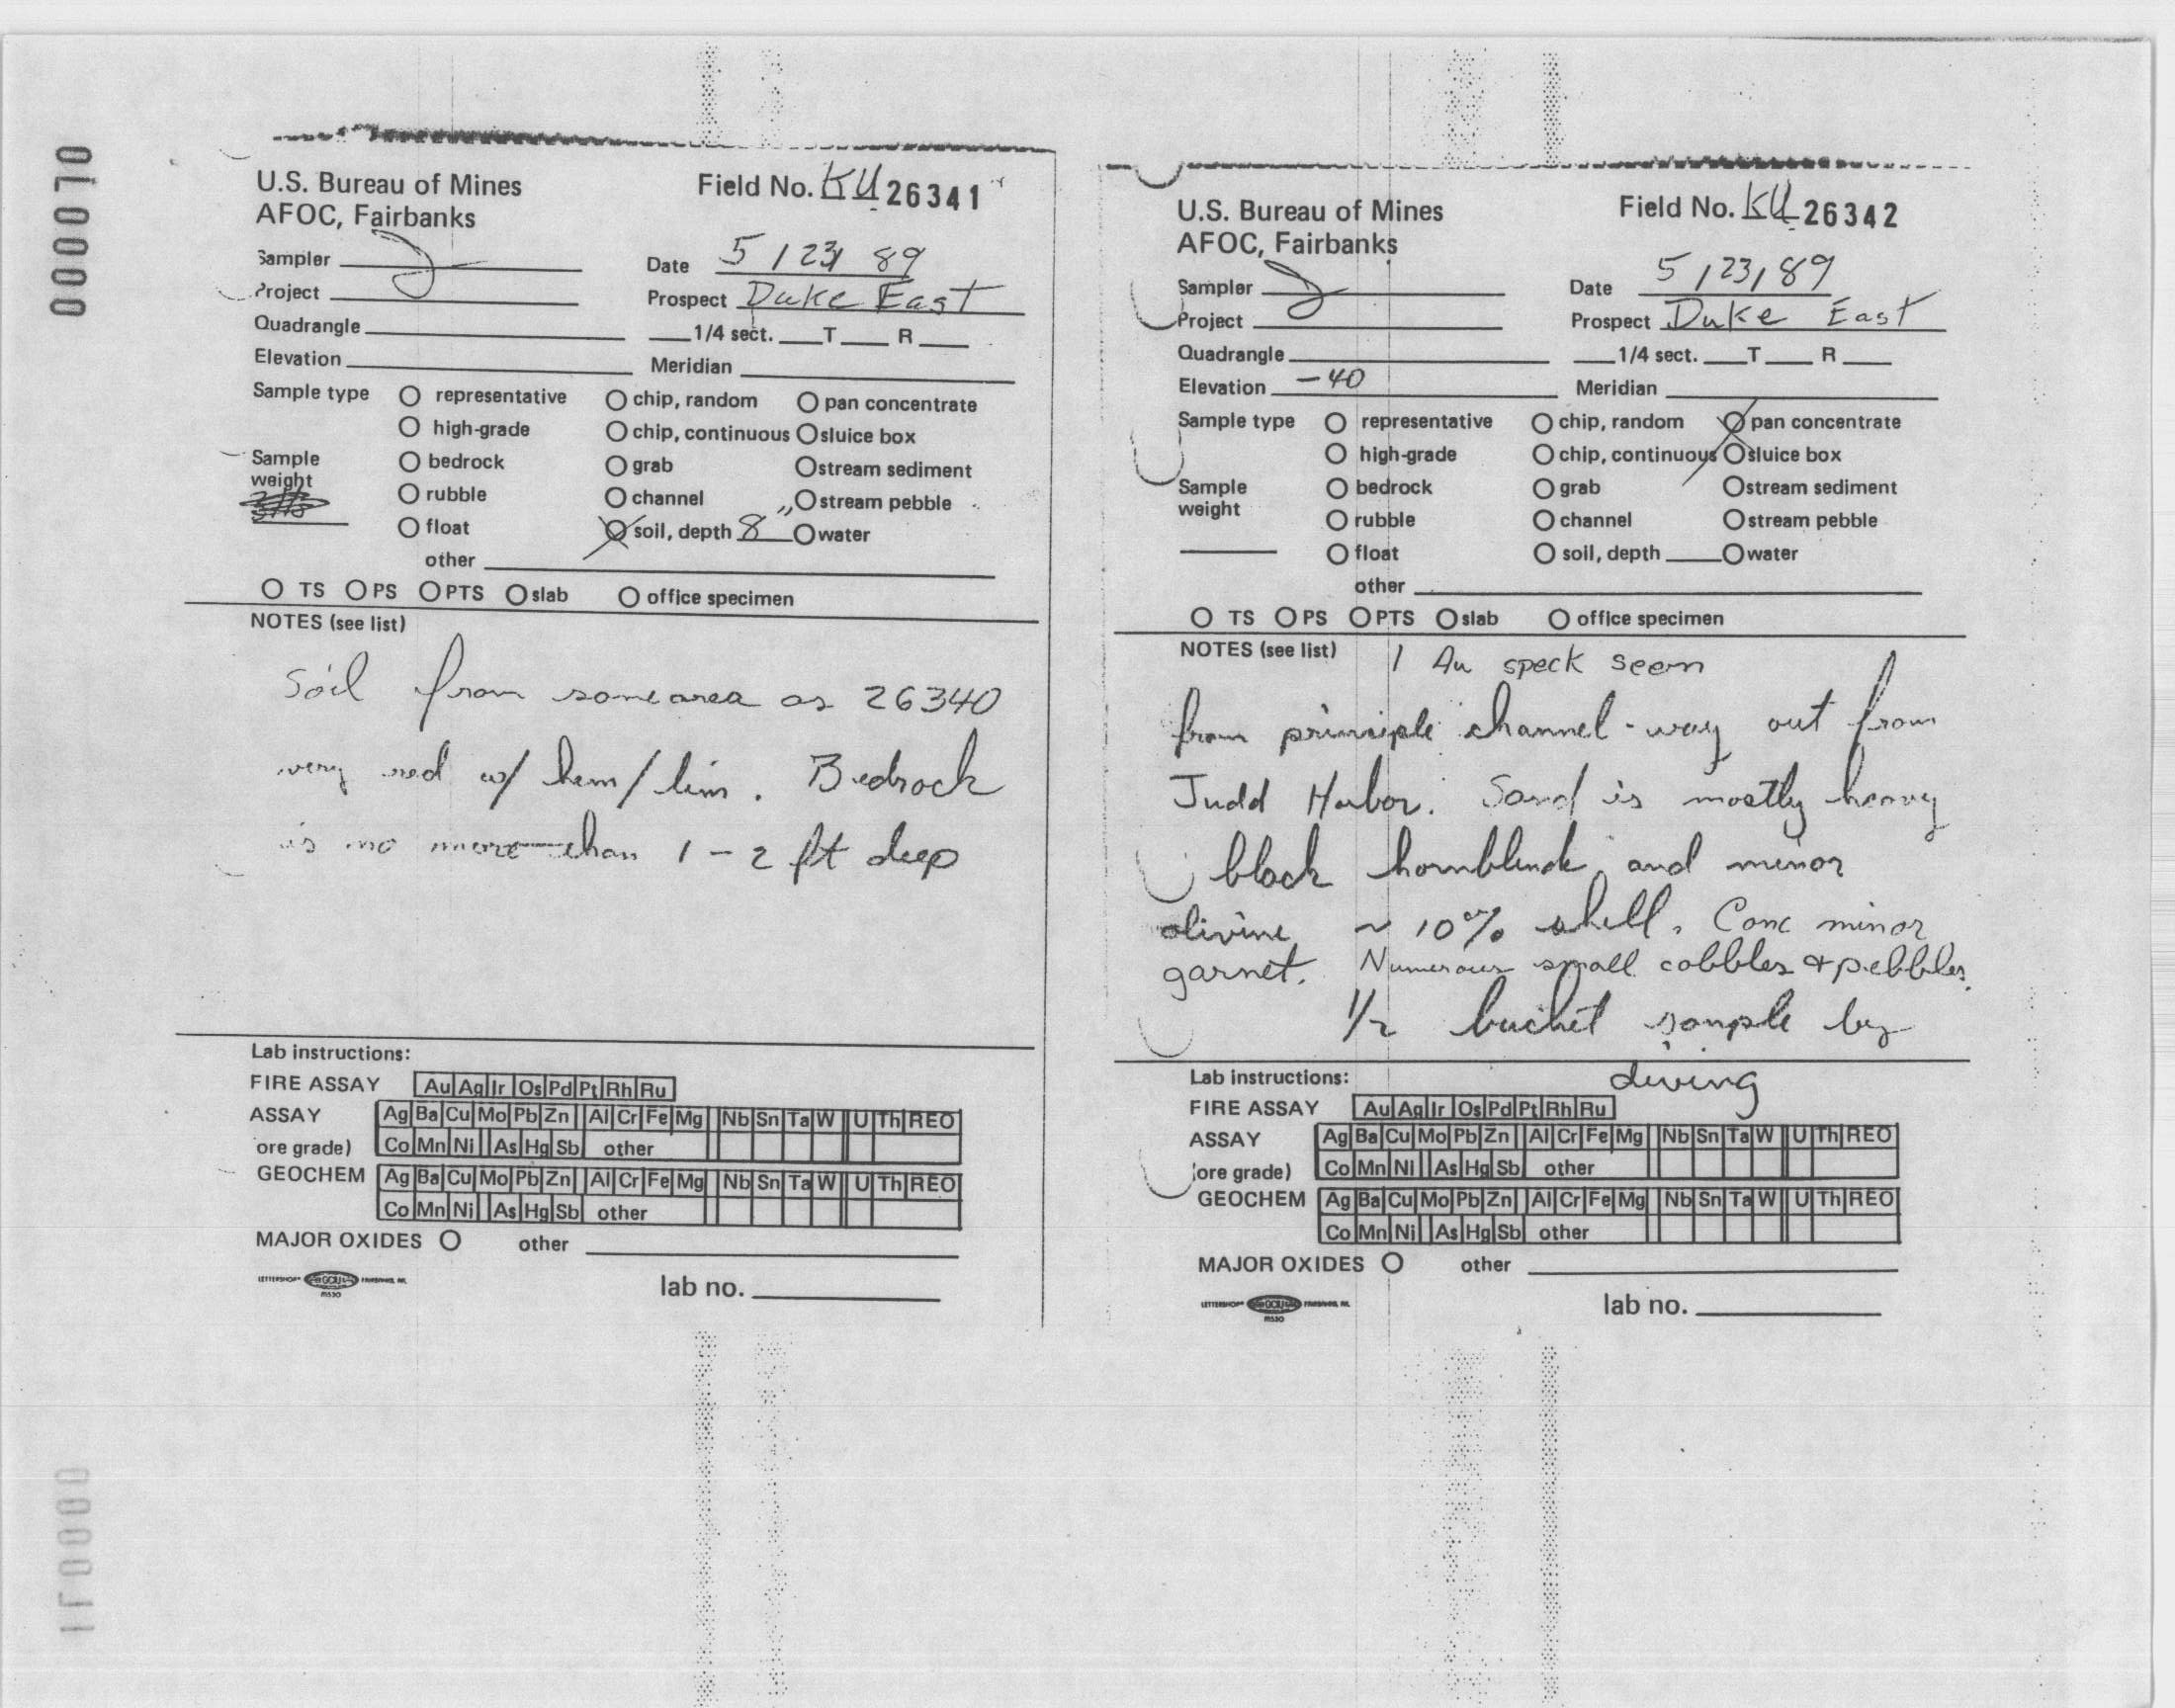 000070
U.S. Bureau of Mines
AFOC, Fairbanks
Field No. KU 26341
Sampler J
Date 5/23/89
Project
Prospect Duke East
Quadrangle
1/4 sect. T R
Elevation
Meridian
Sample type O representative O chip, random O pan concentrate
O high-grade O chip, continuous O sluice box
Sample weight
O bedrock O grab O stream sediment
O rubble O channel O stream pebble
O float O soil, depth 8 O water
other
O TS O PS O PTS O slab O office specimen
NOTES (see list)
Soil from same area as 26340
very red w/ hem/lim. Bedrock
is no more than 1-2 ft deep
Lab instructions:
FIRE ASSAY Au Ag Ir Os Pd Pt Rh Ru
ASSAY Ag Ba Cu Mo Pb Zn Al Cr Fe Mg Nb Sn Ta W U Th REO
ore grade) Co Mn Ni As Hg Sb other
GEOCHEM Ag Ba Cu Mo Pb Zn Al Cr Fe Mg Nb Sn Ta W U Th REO
Co Mn Ni As Hg Sb other
MAJOR OXIDES O other
lab no.
U.S. Bureau of Mines
AFOC, Fairbanks
Field No. KU 26342
Sampler J
Date 5/23/89
Project
Prospect Duke East
Quadrangle
1/4 sect. T R
Elevation -40
Meridian
Sample type O representative O chip, random O pan concentrate
O high-grade O chip, continuous O sluice box
Sample weight
O bedrock O grab O stream sediment
O rubble O channel O stream pebble
O float O soil, depth O water
other
O TS O PS O PTS O slab O office specimen
NOTES (see list) 1 Au speck seen
from principle channel-way out from
Judd Harbor. Sand is mostly heavy
black hornblende and minor
olivine ~ 10% shell. Conc minor
garnet. Numerous small cobbles & pebbles.
1/2 bucket sample by
diving
Lab instructions:
FIRE ASSAY Au Ag Ir Os Pd Pt Rh Ru
ASSAY Ag Ba Cu Mo Pb Zn Al Cr Fe Mg Nb Sn Ta W U Th REO
(ore grade) Co Mn Ni As Hg Sb other
GEOCHEM Ag Ba Cu Mo Pb Zn Al Cr Fe Mg Nb Sn Ta W U Th REO
Co Mn Ni As Hg Sb other
MAJOR OXIDES O other
lab no.